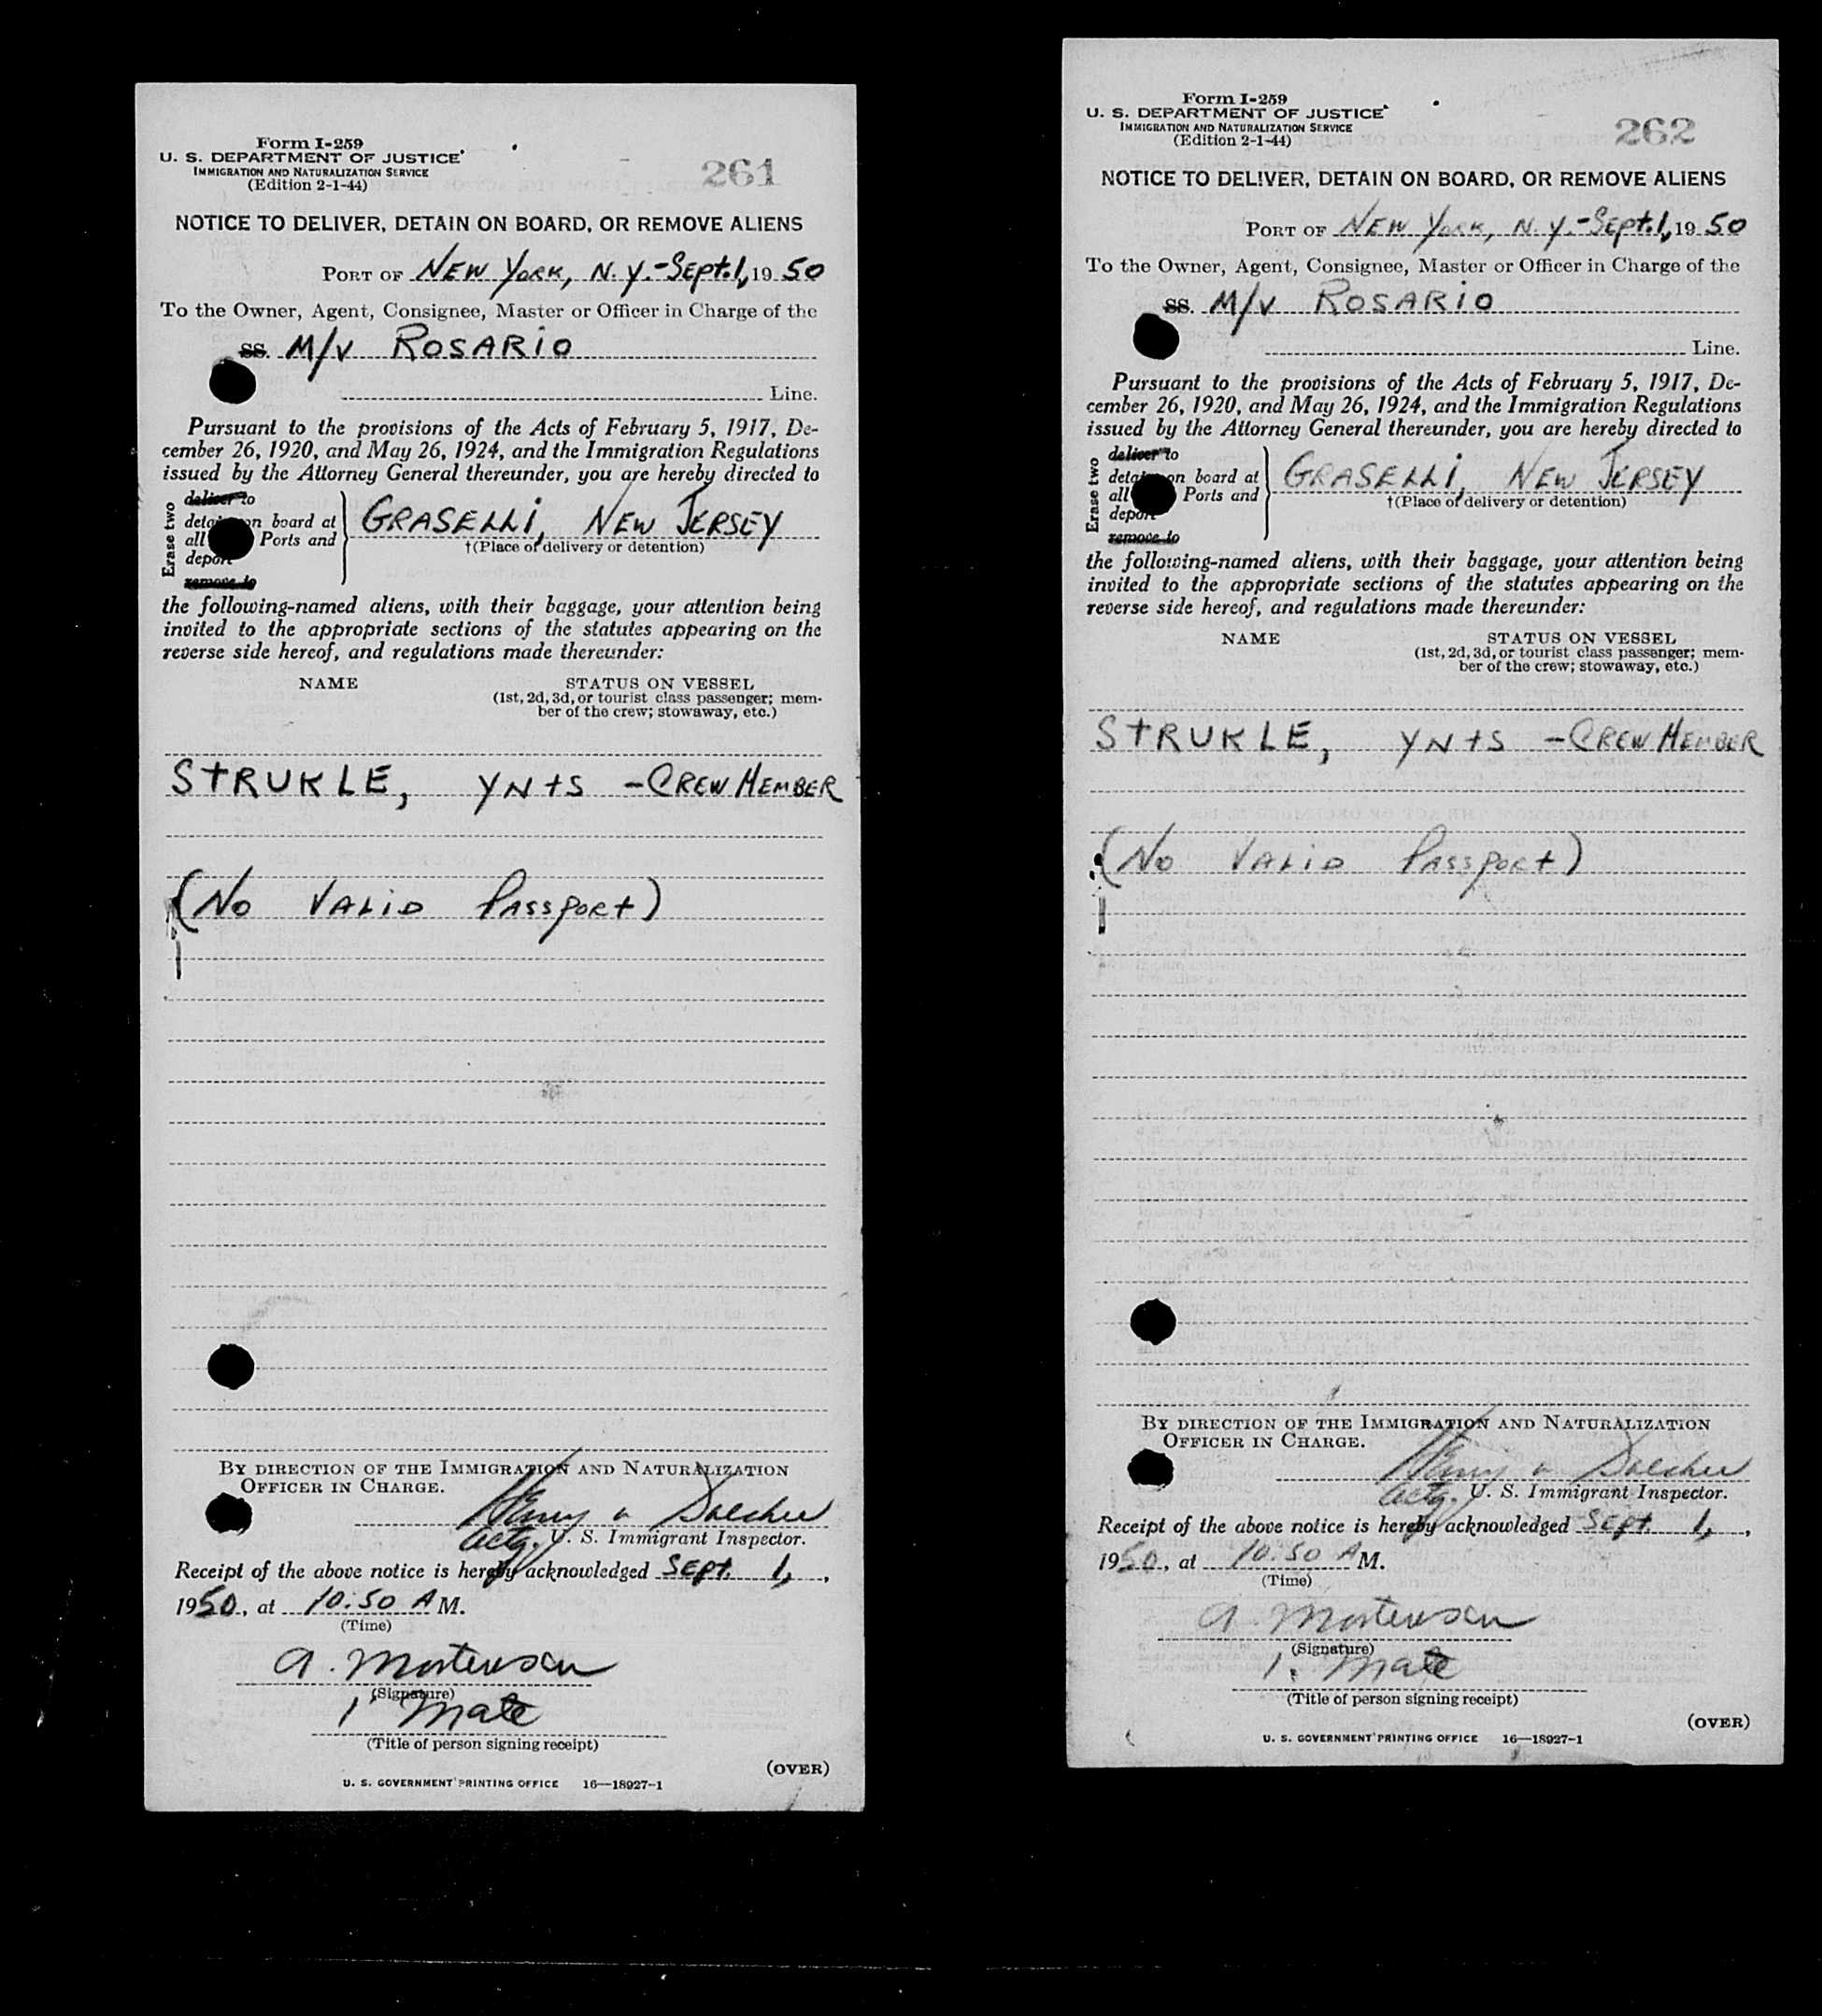 Form I-259
U. S. DEPARTMENT OF JUSTICE
IMMIGRATION AND NATURALIZATION SERVICE
(Edition 2-1-44)
261
NOTICE TO DELIVER, DETAIN ON BOARD, OR REMOVE ALIENS
PORT OF NEW YORK, N. Y.-SEPT. 1, 19 50
To the Owner, Agent, Consignee, Master or Officer in Charge of the
SS. M/V ROSARIO
Line.
Pursuant to the provisions of the Acts of February 5, 1917, De-
cember 26, 1920, and May 26, 1924, and the Immigration Regulations
issued by the Attorney General thereunder, you are hereby directed to
Erase two
deliver to
on board at
all Ports and
depart
remove to
GRASELLI, NEW JERSEY
†(Place of delivery or detention)
the following-named aliens, with their baggage, your attention being
invited to the appropriate sections of the statutes appearing on the
reverse side hereof, and regulations made thereunder:
NAME STATUS ON VESSEL
(1st, 2d, 3d, or tourist class passenger; mem-
ber of the crew; stowaway, etc.)
STRUKLE, YNTS - CREW MEMBER
(NO VALID PASSPORT)
BY DIRECTION OF THE IMMIGRATION AND NATURALIZATION
OFFICER IN CHARGE.
Henry
Actg. U. S. Immigrant Inspector.
Receipt of the above notice is hereby acknowledged SEPT. 1,
1950, at 10:50 A M.
(Time)
A. Mortensen
(Signature)
1. Mate
(Title of person signing receipt)
(OVER)
U. S. GOVERNMENT PRINTING OFFICE 16—18927-1
Form I-259
U. S. DEPARTMENT OF JUSTICE
IMMIGRATION AND NATURALIZATION SERVICE
(Edition 2-1-44)
262
NOTICE TO DELIVER, DETAIN ON BOARD, OR REMOVE ALIENS
PORT OF NEW YORK, N. Y.-SEPT. 1, 19 50
To the Owner, Agent, Consignee, Master or Officer in Charge of the
SS. M/V ROSARIO
Line.
Pursuant to the provisions of the Acts of February 5, 1917, De-
cember 26, 1920, and May 26, 1924, and the Immigration Regulations
issued by the Attorney General thereunder, you are hereby directed to
Erase two
deliver to
on board at
all Ports and
depart
remove to
GRASELLI, NEW JERSEY
†(Place of delivery or detention)
the following-named aliens, with their baggage, your attention being
invited to the appropriate sections of the statutes appearing on the
reverse side hereof, and regulations made thereunder:
NAME STATUS ON VESSEL
(1st, 2d, 3d, or tourist class passenger; mem-
ber of the crew; stowaway, etc.)
STRUKLE, YNTS - CREW MEMBER
(NO VALID PASSPORT)
BY DIRECTION OF THE IMMIGRATION AND NATURALIZATION
OFFICER IN CHARGE.
Henry
Actg. U. S. Immigrant Inspector.
Receipt of the above notice is hereby acknowledged SEPT. 1,
1950, at 10:50 A M.
(Time)
A. Mortensen
(Signature)
1. Mate
(Title of person signing receipt)
(OVER)
U. S. GOVERNMENT PRINTING OFFICE 16—18927-1